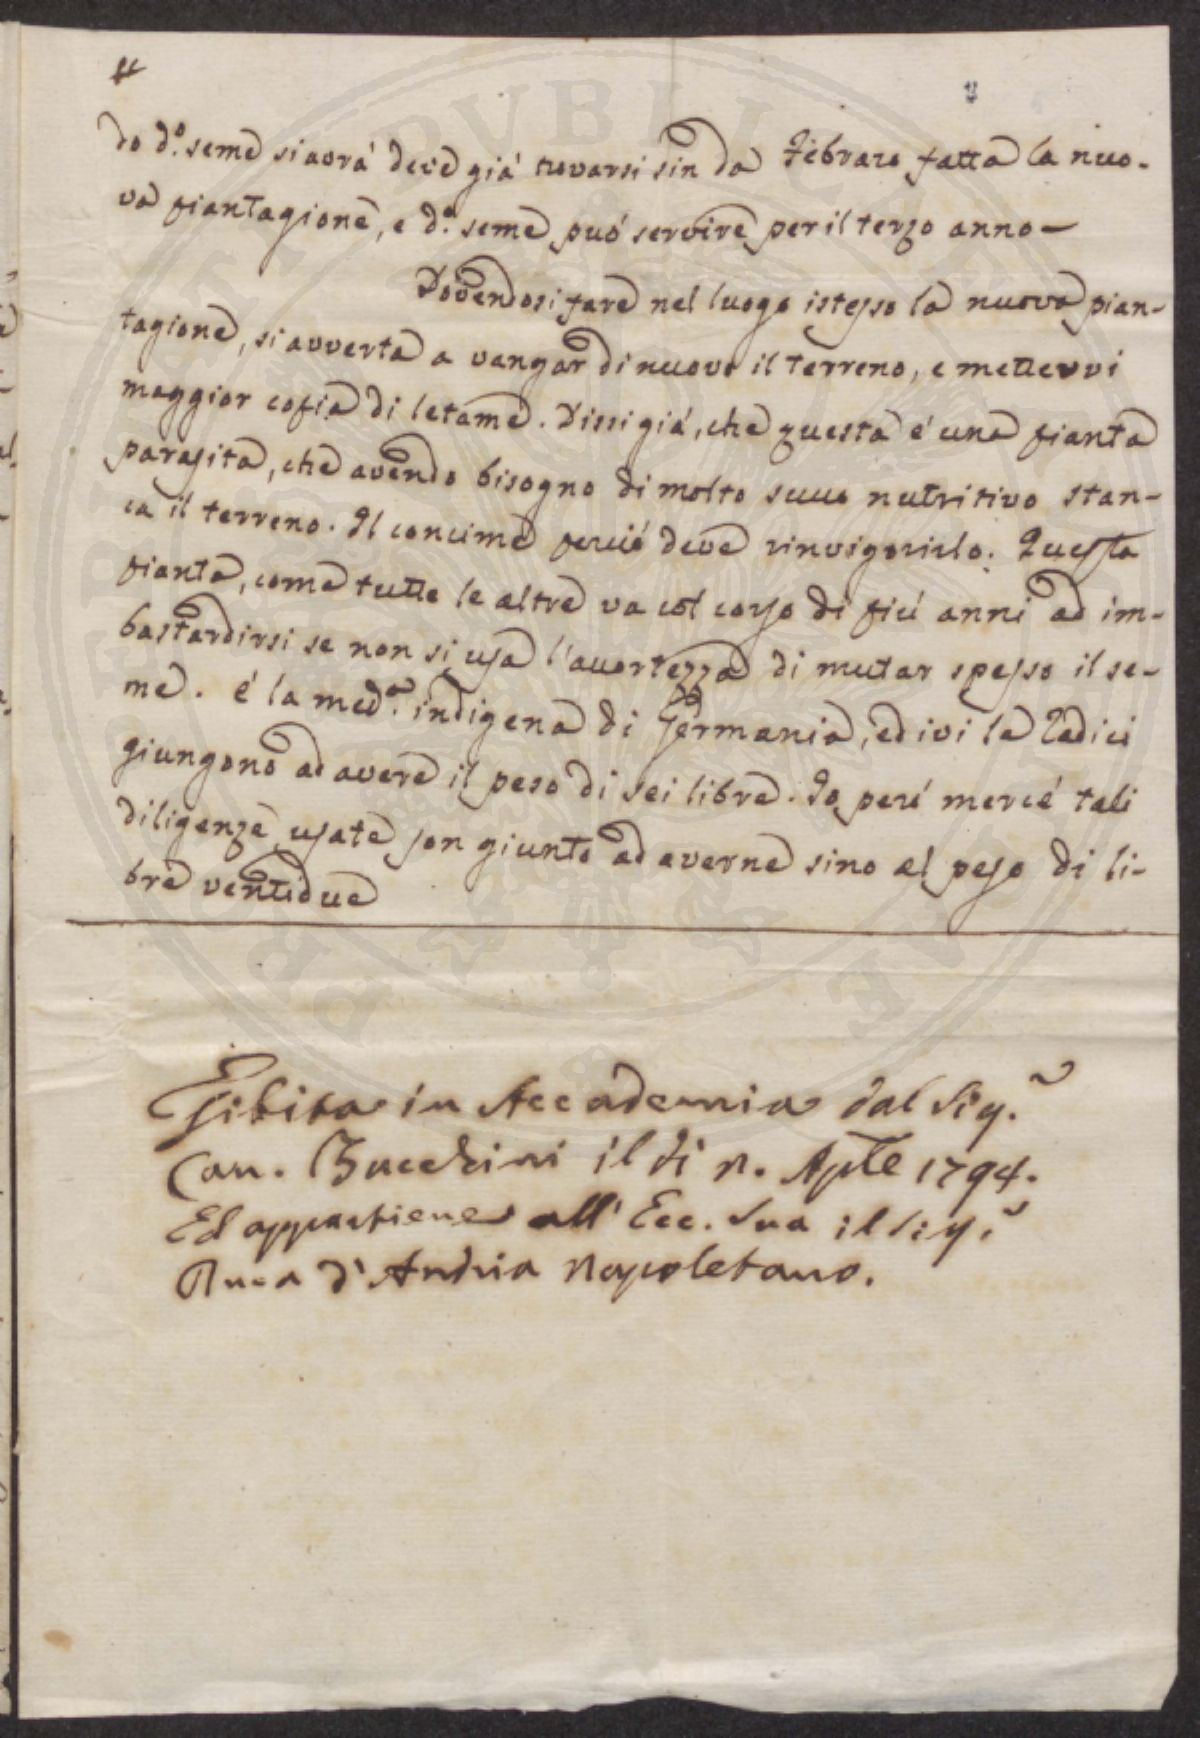 do d.º seme si avrá deve giá trovarsi sin da Febraro fatta la nuo-
va piantagione, e d.º seme puó servire per il terzo anno —
Dovendosi fare nel luogo istesso la nuova pian-
tagione, si avverta a vangar di nuovo il terreno, e mettervi
maggior copia di letame. Dissi giá, che questa é una pianta
parasita, che avendo bisogno di molto succo nutritivo stan-
ca il terreno. Il concime perció deve rinvigorirlo. Questa
pianta, come tutte le altre va col corso di piú anni ad im-
bastardirsi se non si usa l'accortezza di mutar spesso il se-
me. é la med.ª indigena di Germania, ed ivi le Radici
giungono ad avere il peso di sei libre. Io peró mercé tali
diligenze usate son giunto ad averne sino al peso di li-
bre ventidue
Esibita in Accademia dal Sig.
Can. Bucchini il di Aple 1794.
Ed appartiene all' Ecc. Sua il Sig.
Duca d'Andria Napoletano.